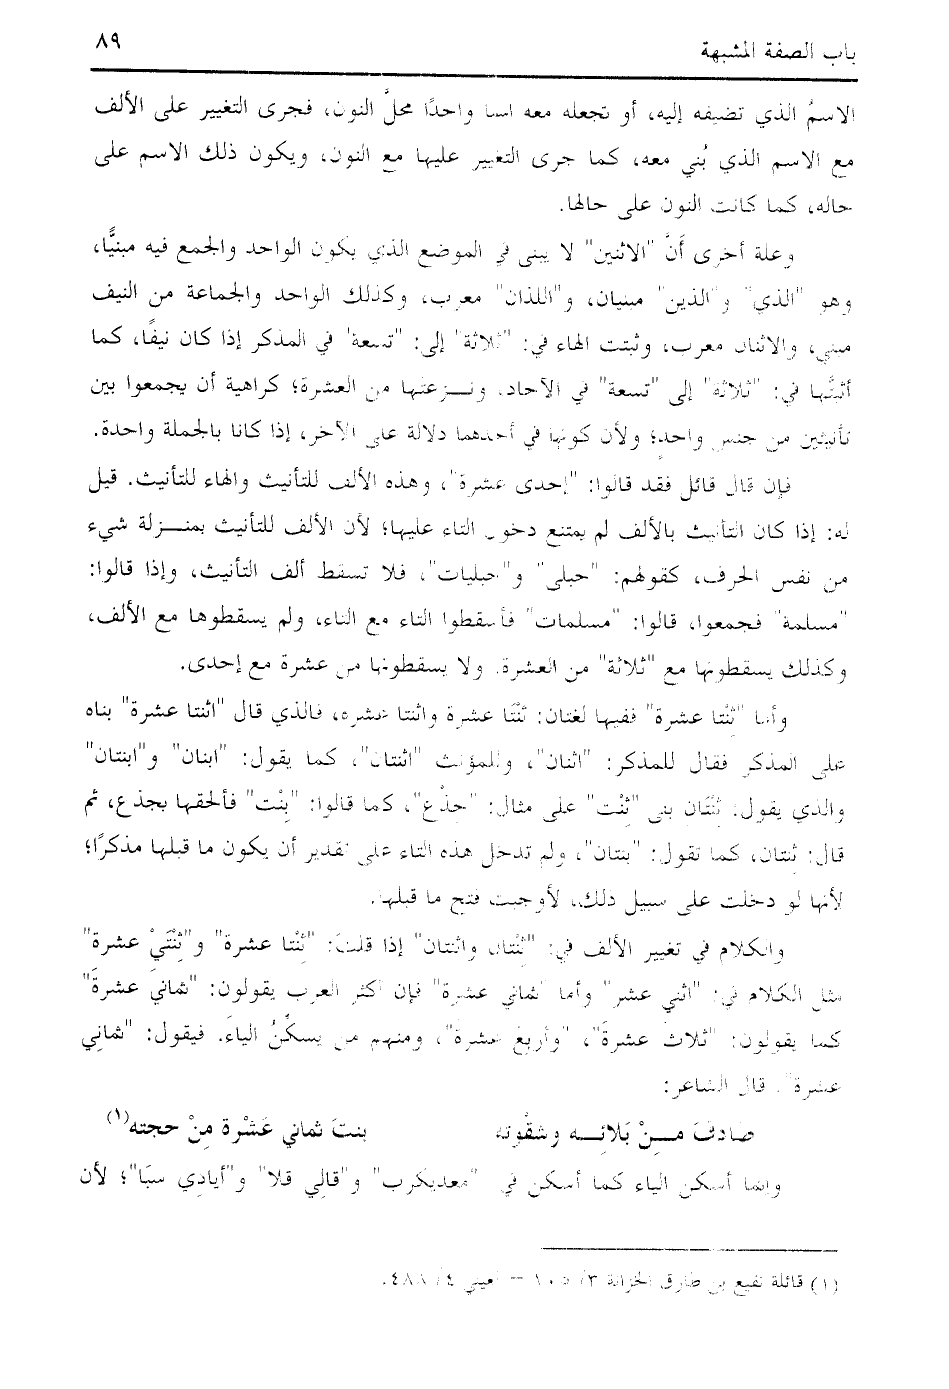 باب الصفة المشبهة
٨٩
الاسمُ الذي تضيفه إليه، أو تجعله معه اسما واحدًا محلَّ النون، فجرى التغيير على الألف
مع الاسم الذي بُني معه، كما جرى التغيير عليها مع النون، ويكون ذلك الاسم على
حاله، كما كانت النون على حالها.
وعلة أخرى أنَّ "الاثنين" لا يبنى في الموضع الذي يكون الواحد والجمع فيه مبنيًّا،
وهو "الذي" و"الذين" مبنيان، و"اللذان" معرب، وكذلك الواحد والجماعة من النيف
مبني، والاثنان معرب، وثبتت الهاء في: "ثلاثة" إلى: "تسعة" في المذكر إذا كان نيفًا، كما
أثبتَّها في: "ثلاثة" إلى "تسعة" في الآحاد، ونـزعتها من العشرة؛ كراهية أن يجمعوا بين
تأنيثين من جنس واحدٍ؛ ولأن كونها في أحدهما دلالة على الآخر، إذا كانا بالجملة واحدة.
فإن قال قائل فقد قالوا: "إحدى عشرة"، وهذه الألف للتأنيث والهاء للتأنيث. قيل
له: إذا كان التأنيث بالألف لم يمتنع دخول التاء عليها؛ لأن الألف للتأنيث بمنـزلة شيء
من نفس الحرف، كقولهم: "حبلى" و"حبليات"، فلا تسقط ألف التأنيث، وإذا قالوا:
"مسلمة" فجمعوا، قالوا: "مسلمات" فأسقطوا التاء مع التاء، ولم يسقطوها مع الألف،
وكذلك يسقطونها مع "ثلاثة" من العشرة. ولا يسقطونها من عشرة مع إحدى.
وأما "ثِنْتا عشرة" ففيها لغتان: ثِنْتَا عشرة واثنتا عشره، فالذي قال "اثنتا عشرة" بناه
على المذكر فقال للمذكر: "اثنان"، وللمؤنث "اثنتان"، كما يقول: "ابنان" و"ابنتان"
والذي يقول: ثِنْتَان بنى "ثِنْت" على مثال: "جذْع"، كما قالوا: "بِنْت" فألحقها بجذع، ثم
قال: ثنتان، كما تقول: "بنتان"، ولم تدخل هذه التاء على تقدير أن يكون ما قبلها مذكرًا؛
لأنها لو دخلت على سبيل ذلك، لأوجبت فتح ما قبلها.
والكلام في تغيير الألف في: "ثِنْتان واثنتان" إذا قلتَ: "ثِنْتا عشرة" و"ثِنْتَيْ عشرة"
مثل الكلام في: "اثني عشر" وأما "ثماني عشرة" فإن أكثر العرب يقولون: "ثمانيَ عشرةَ"
كما يقولون: "ثلاثَ عشرةَ"، "وأربعَ عشرةَ"، ومنهم من يسكِّنُ الياءَ. فيقول: "ثماني
عشرة". قال الشاعر:
صادفَ مـنْ بَلائـه وشقْوته بنتَ ثماني عَشْرة مِنْ حجته(١)
وإنما أسكن الياء كما أسكن في "معديكرب" و"قالي قلا" و"أيادي سبَا"؛ لأن
(١) قائلة نفيع بن طارق الخزانة ٣/ ١٠٥ – العيني ٤/ ٤٨٨.